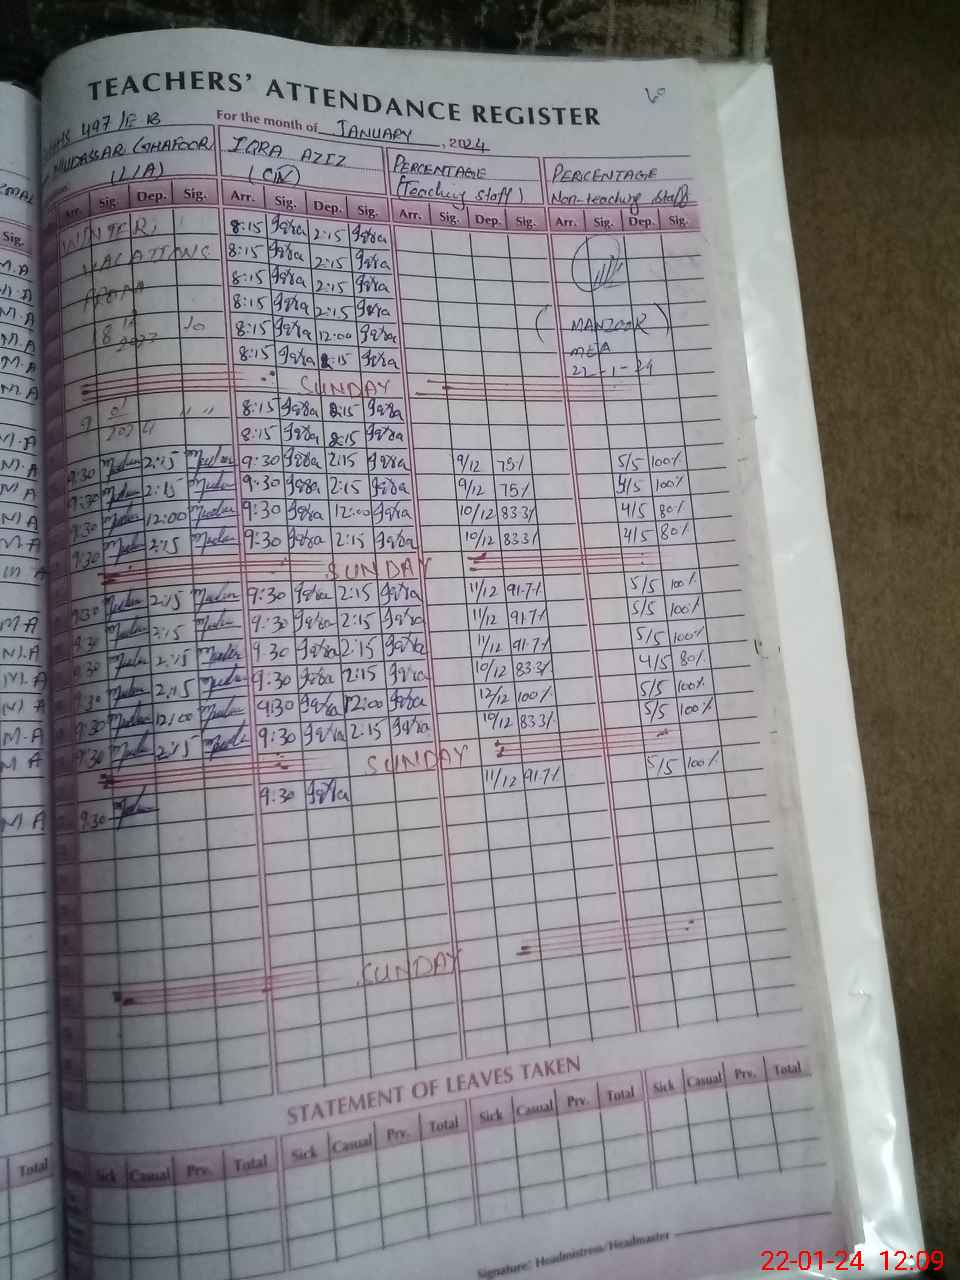 TEACHERS' ATTENDANCE REGISTER
497/E B
For the month of JANUARY, 2024
MUDASSAR GHAFOOR
IQRA AZIZ
PERCENTAGE
(Teaching staff)
PERCENTAGE
Non-teaching staff
Arr. Sig. Dep. Sig. Arr. Sig. Dep. Sig. Arr. Sig. Dep. Sig. Arr. Sig. Dep. Sig.
WINTER 8:15 Iqra 2:15 Iqra
VACATIONS 8:15 Iqra 2:15 Iqra
FROM 8:15 Iqra 2:15 Iqra
8:15 Iqra 2:15 Iqra
18 12 2023 To 8:15 Iqra 12:00 Iqra (MANZOOR)
8:15 Iqra 2:15 Iqra MEA
22-1-24
SUNDAY
9 01 2024 " " 8:15 Iqra 2:15 Iqra
8:15 Iqra 2:15 Iqra
9:30 2:15 9:30 Iqra 2:15 Iqra 9/12 75% 5/5 100%
9:30 2:15 9:30 Iqra 2:15 Iqra 9/12 75% 5/5 100%
9:30 12:00 9:30 Iqra 12:00 Iqra 10/12 83.3% 4/5 80%
9:30 2:15 9:30 Iqra 2:15 Iqra 10/12 83.3% 4/5 80%
SUNDAY
9:30 2:15 9:30 Iqra 2:15 Iqra 11/12 91.7% 5/5 100%
9:30 2:15 9:30 Iqra 2:15 Iqra 11/12 91.7% 5/5 100%
9:30 2:15 9:30 Iqra 2:15 Iqra 11/12 91.7% 5/5 100%
9:30 2:15 9:30 Iqra 2:15 Iqra 10/12 83.3% 4/5 80%
9:30 12:00 9:30 Iqra 12:00 Iqra 12/12 100% 5/5 100%
9:30 2:15 9:30 Iqra 2:15 Iqra 10/12 83.3% 5/5 100%
SUNDAY
9:30 9:30 Iqra 11/12 91.7% 5/5 100%
SUNDAY
STATEMENT OF LEAVES TAKEN
Total Sick Casual Prv. Total Sick Casual Prv. Total Sick Casual Prv. Total Sick Casual Prv. Total
Signature: Headmistress/Headmaster
22-01-24 12:09